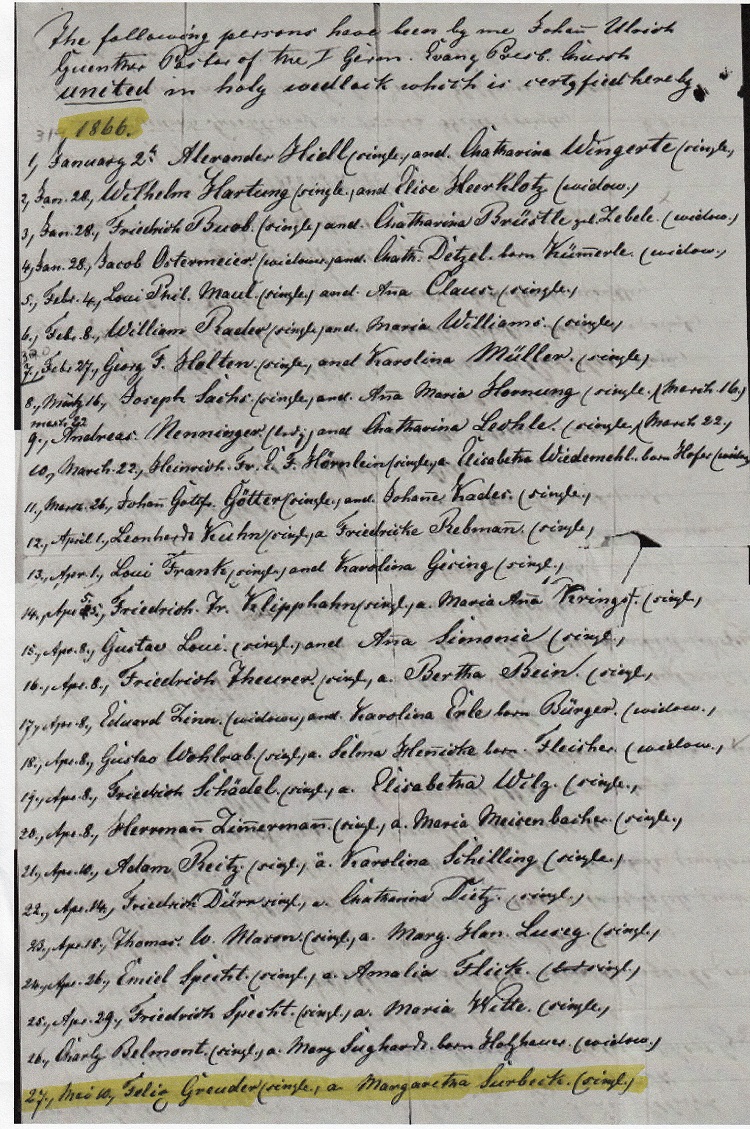 The following persons have been by me Johañ Ulrich
Guenther Pastor of the I Germ. Evang Presb. Church
united in holy wedlock which is certyfied hereby
1866.
1, January 2t Alexander Hidl (single,) and. Chatharina Wingerte (single,
2, Jan. 20, Wilhelm Hartung (single., and Elise Heerklotz (widow.)
3, Jan. 28., Friedrich Buob. (single) and. Chatharina Brüstle geb. Zebele. (widow.)
4, Jan. 28., Jacob Ostermeier. (widower,) and. Chath. Detzel. born Küm̄erle. (widow.)
5., Febr. 4., Loui Phil. Maul. (single) and. Aña Claus. (single.)
6., Feb. 8., William Rader (single) and. Maria Williams. (single,)
7., Feb. 27., Georg F. Holten. (single, and Karolina Müller. (single,)
8., März 16, Joseph Sachs. (single, and. Aña Maria Hornung (single. (March. 16.)
march. 22
9., Andreas. Nenninger. and Chatharina Leohle. (single, (March 22,)
10, March. 22., Heinrich. Fr. E. F. Hörnlein (single, a Elisabetha Wiedemehl. born Hofer (widow
11., March. 26, Johañ Gottfr. Götter (single, and. Johañe Kades. (single.)
12., April 1., Leonhardt Kuhn (singl, a Friedricke Rebmañ. (single,
13., Apr. 1., Loui Frank (single,) and Karolina Gesing (singl.,)
14., Apr. 5., Friedrich. Fr. Klipphahn (singl, a. Maria Aña Krings. (singl,
15., Apr. 8., Gustav Loui. (singl., and Aña Simonie (singl,
16., Apr. 8., Friedrich Theurer. (singl, a. Bertha Bein. (singl,
17., Apr. 8., Eduard Zinn. (widower, and. Karolina Erle born Bürger. (widow.,
18., Apr. 8., Gustav Wohlrab. (singl, a. Selma Henicke born. Fleisher. (widow.,
19., Apr. 8., Friedrich Schädel. (singl., a. Elisabetha Wilz. (single.,
20., Apr. 8., Herrmañ Zim̄ermañ. (singl, a. Maria Meisenbacher. (single.,
21., Apr. 10., Adam Reitz. (singl., a. Karolina Schilling (single.,
22., Apr. 14., Friedrich Dürr singl., a. Chatharina Dietz. (singl.,
23., Apr. 18., Thomas. W. Mason. (singl., a. Marg. Han. Luseg. (singl.,
24., Apr. 26., Emiel Specht. (singl., a. Amalia Flick. (singl.,
25., Apr. 29., Friedrich Specht. (singl., a. Maria Witte. (single.,
26., Charly Belmont. (singl., a. Mary Sughardt. born Holzhauer. (widow.,
27., Mai 10., Felix Greuder (single., a. Margaretha Surbeck. (singl.,